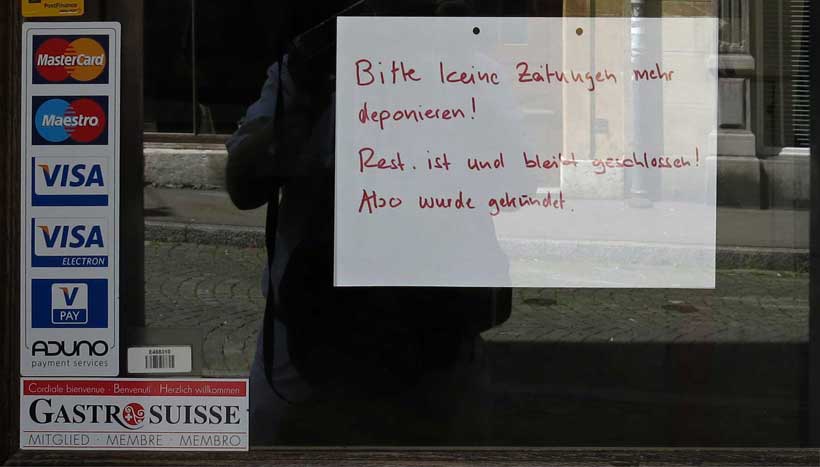 PostFinance
MasterCard
Maestro
VISA
VISA
ELECTRON
V
PAY
ADUNO
payment services
Cordiale bienvenue · Benvenuti · Herzlich willkommen
GASTRO SUISSE
MITGLIED · MEMBRE · MEMBRO
Bitte keine Zeitungen mehr
deponieren!
Rest. ist und bleibt geschlossen!
Abo wurde gekündet.